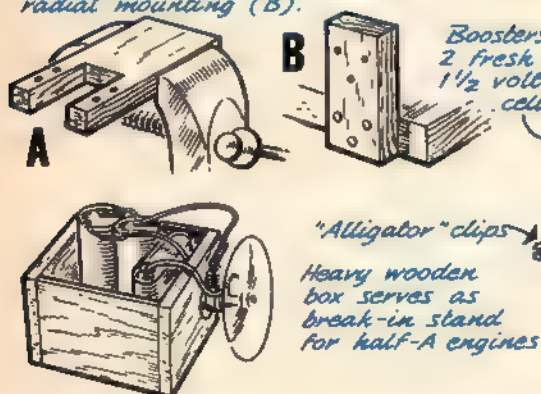 radial mounting (B).
A
B
Boosters
2 fresh
1½ volt
cell
"Alligator" clips
Heavy wooden
box serves as
break-in stand
for half-A engines